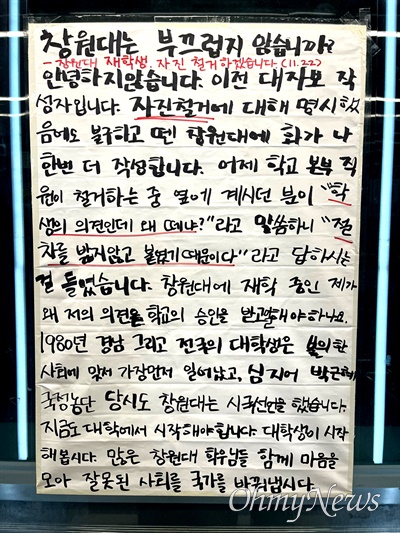 창원대는 부끄럽지 않습니까?
- 창원대 재학생. 자진 철거하겠습니다 (11.22)
안녕하지않습니다. 이전 대자보 작
성자입니다. 자진철거에 대해 명시했
음에도 불구하고 뗀 창원대에 화가 나
한번 더 작성합니다. 어제 학교 본부 직
원이 철거하는 중 옆에 계시던 분이 "학
생의 의견인데 왜 떼냐?"라고 말씀하니 "절
차를 밟지않고 붙였기때문이다"라고 답하시는
걸 들었습니다. 창원대에 재학 중인 제가
왜 저의 의견을 학교의 승인을 받고말해야하나요.
1980년 경남 그리고 전국의 대학생은 불의한
사회에 맞서 가장먼저 일어났고, 심지어 박근혜
국정농단 당시도 창원대는 시국선언을 했습니다.
지금도 대학에서 시작해야 합니다. 대학생이 시작
해봅시다. 많은 창원대 학우님들 함께 마음을
모아 잘못된 사회를 국가를 바꿔냅시다.
OhmyNews